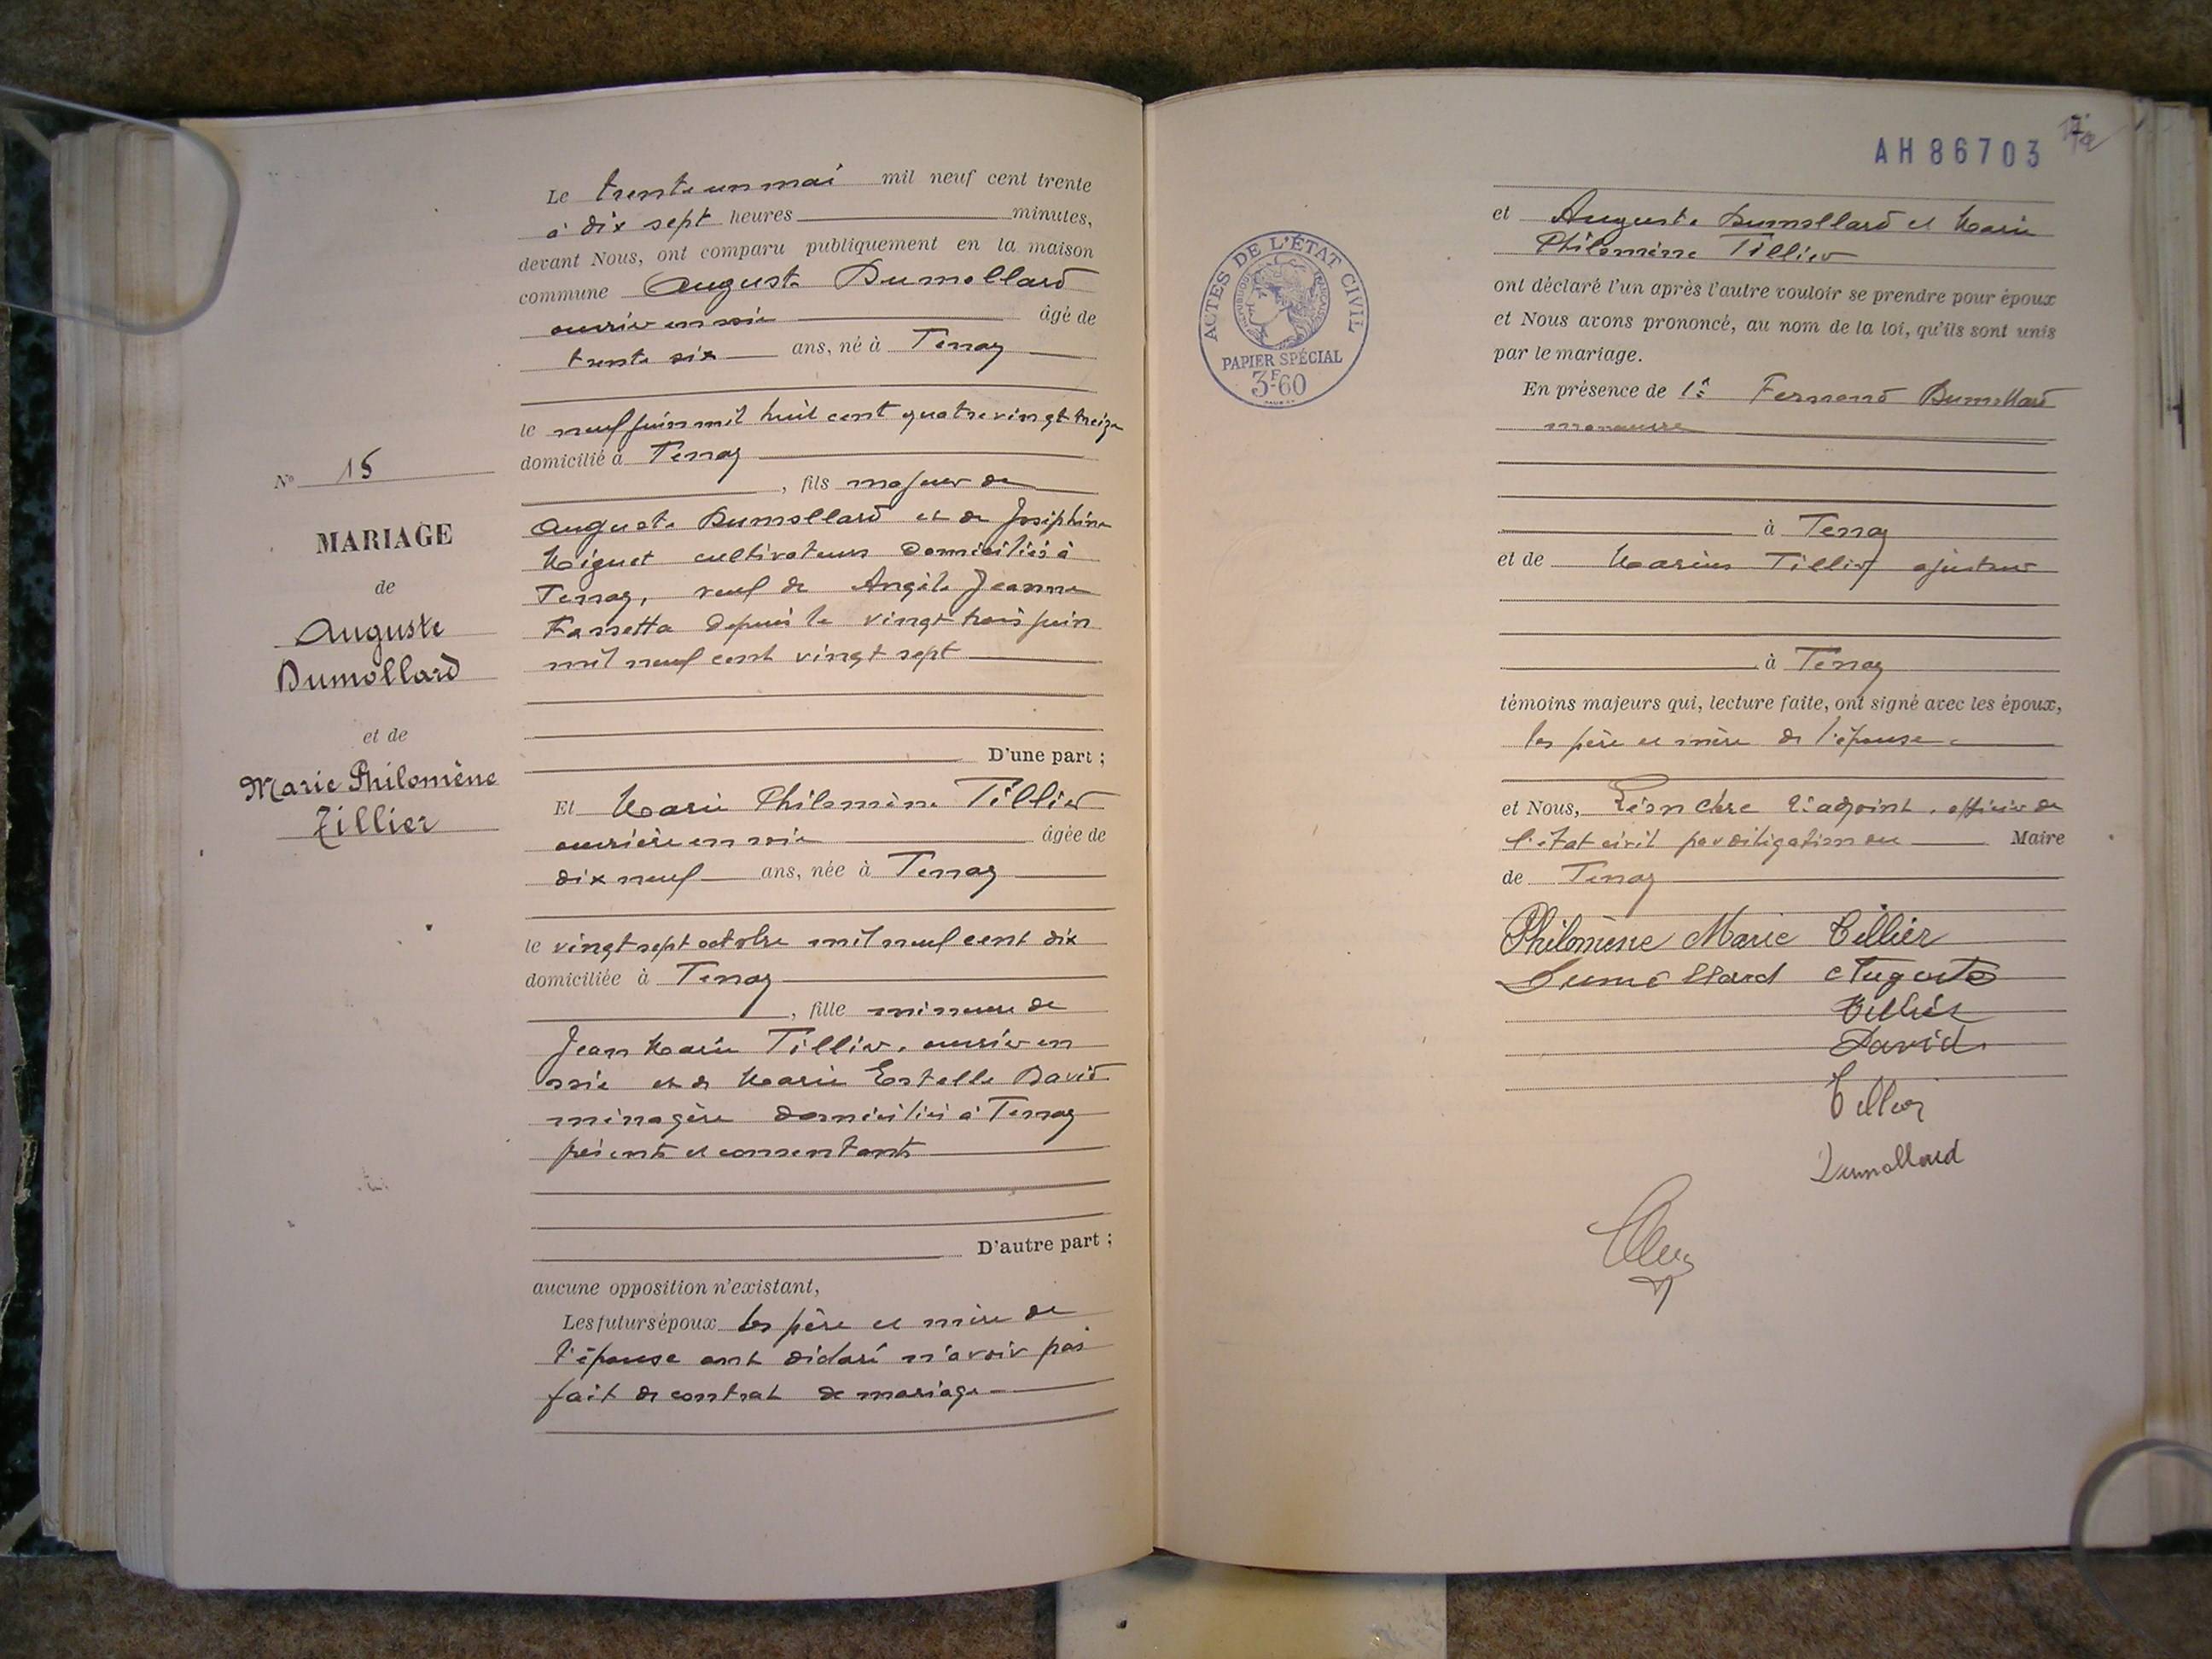 Le trente un mai mil neuf cent trente
à dix sept heures minutes,
devant Nous, ont comparu publiquement en la maison
commune Auguste Dumollard
ouvrier en soie âgé de
trente six ans, né à Tenay
le neuf juin mil huit cent quatre vingt treize
domicilié à Tenay
, fils majeur de
Auguste Dumollard et de Joséphine
Miguet cultivateurs domiciliés à
Tenay, veuf de Angèle Jeanne
Fassetta depuis le vingt trois juin
mil neuf cent vingt sept
D'une part ;
Et Marie Philomène Tillier
ouvrière en soie âgée de
dix neuf ans, née à Tenay
le vingt sept octobre mil neuf cent dix
domiciliée à Tenay
, fille mineure de
Jean Marie Tillier, ouvrier en
soie et de Marie Estelle David
ménagère domiciliés à Tenay
présents et consentants
D'autre part ;
aucune opposition n'existant,
Les futurs époux les père et mère de
l'épouse ont déclaré n'avoir pas
fait de contrat de mariage
N° 15
MARIAGE
de
Auguste
Dumollard
et de
Marie Philomène
Tillier
AH 86703
ACTES DE L'ÉTAT CIVIL
RÉPUBLIQUE FRANÇAISE
PAPIER SPÉCIAL
3F60
et Auguste Dumollard et Marie
Philomène Tillier
ont déclaré l'un après l'autre vouloir se prendre pour époux
et Nous avons prononcé, au nom de la loi, qu'ils sont unis
par le mariage.
En présence de 1° Fernand Dumollard
manœuvre
à Tenay
et de Marius Tillier ajusteur
à Tenay
témoins majeurs qui, lecture faite, ont signé avec les époux,
les père et mère de l'épouse
et Nous, Léon adjoint, officier de
l'état civil par délégation du Maire
de Tenay
Philomène Marie Tillier
Dumollard Auguste
Tillier
David
Tillier
Dumollard